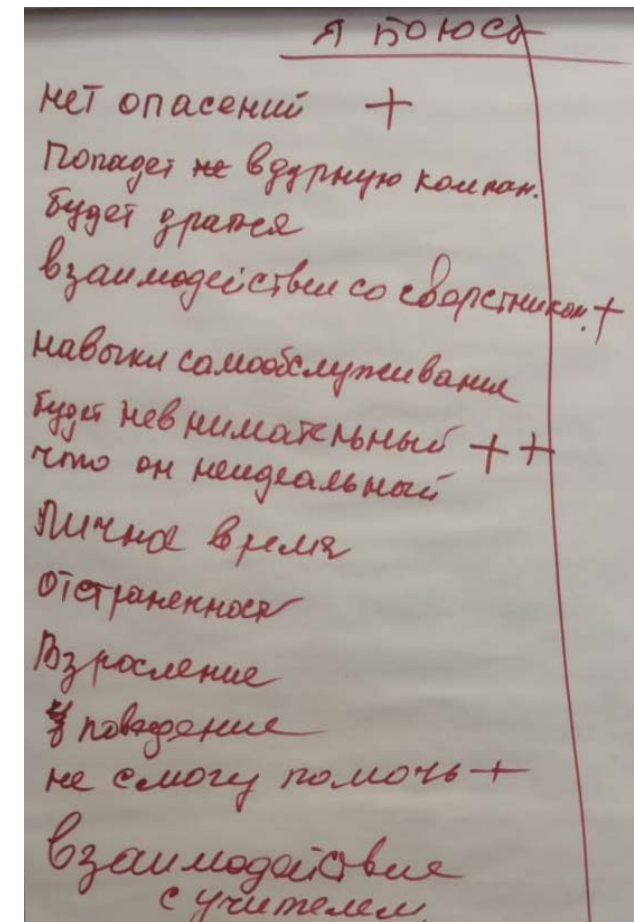 Я БОЮСЬ
нет опасений +
Попадет не в дурную компан.
будет дратся
взаимодействии со сверстником. +
навыки самообслуживание
будет невнимательный ++
что он неидеальный
Лична время
отстраненность
Взросление
поведение
не смогу помочь +
взаимодействие
с учителем